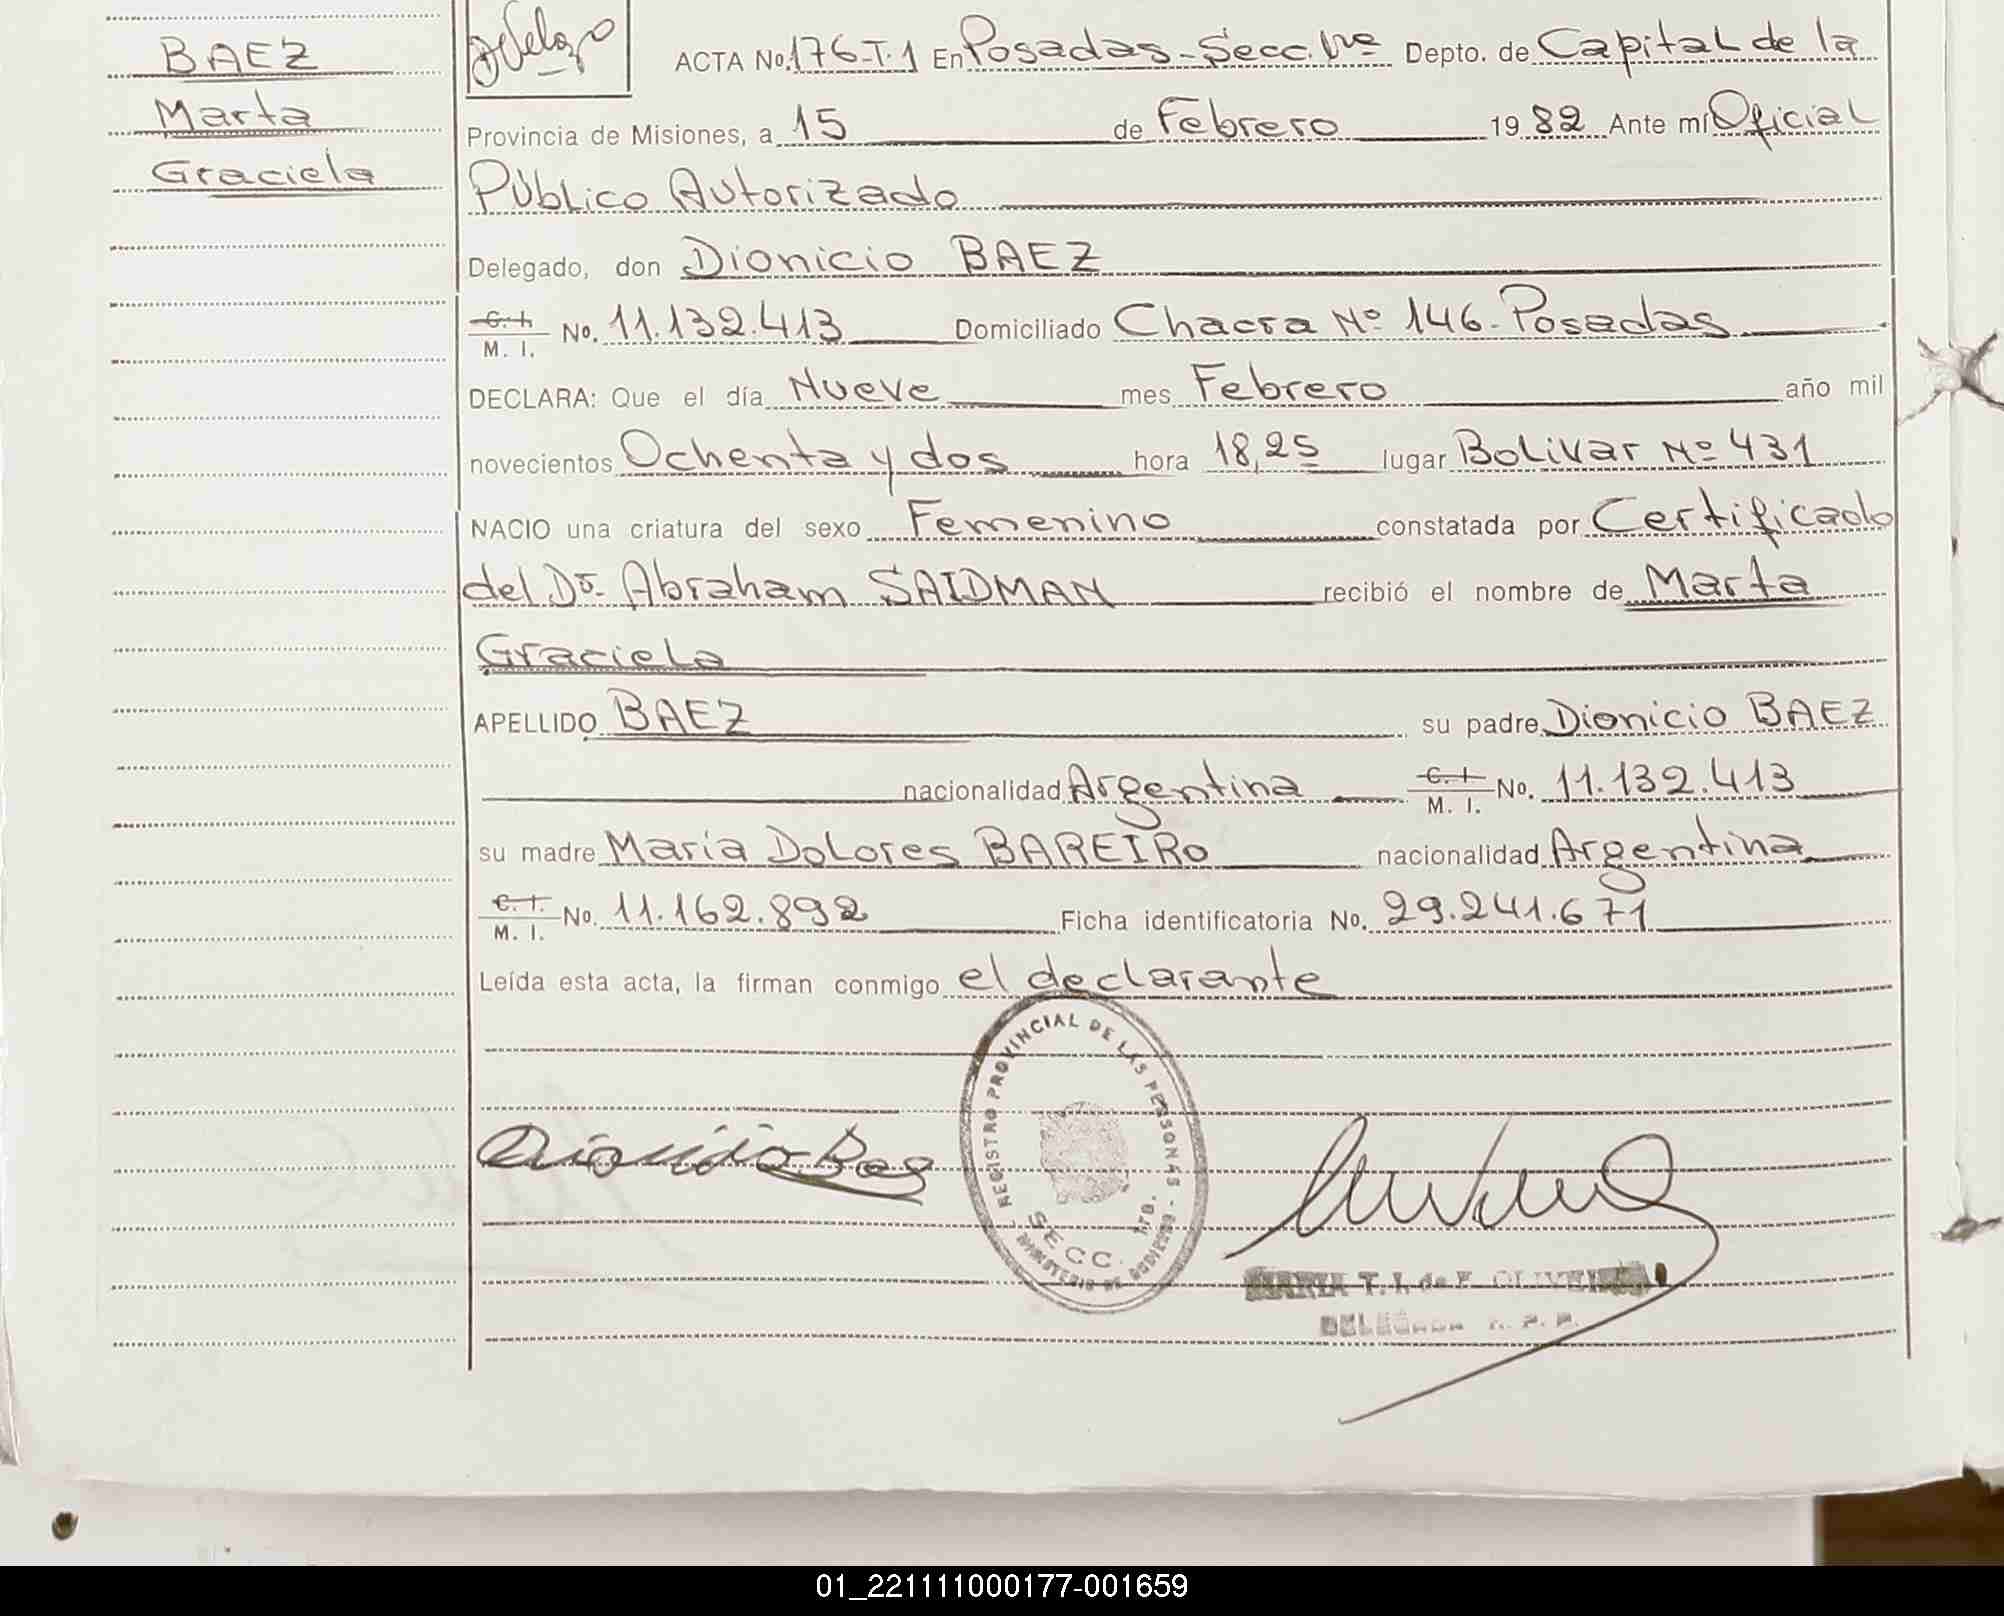 BAEZ
Marta
Graciela
ACTA No. 176-T.1 En Posadas-Secc. 1ra Depto. de Capital de la
Provincia de Misiones, a 15 de Febrero 1982 Ante mí Oficial
Público Autorizado
Delegado, don Dionicio BAEZ
C. I.
M. I. No. 11.132.413 Domiciliado Chacra Nº 146-Posadas
DECLARA: Que el día Nueve mes Febrero año mil
novecientos Ochenta y dos hora 18,25 lugar Bolivar Nº 431
NACIO una criatura del sexo Femenino constatada por Certificado
del Dr. Abraham SAIDMAN recibió el nombre de Marta
Graciela
APELLIDO BAEZ su padre Dionicio BAEZ
nacionalidad Argentina C. I. M. I. No. 11.132.413
su madre Maria Dolores BAREIRO nacionalidad Argentina
C. I.
M. I. No. 11.162.892 Ficha identificatoria No. 29.241.671
Leída esta acta, la firman conmigo el declarante
REGISTRO PROVINCIAL DE LAS PERSONAS - MINISTERIO DE GOBIERNO
SECC. 1ra.
Dionicio Baez
MARIA T. I. de F. OLIVEIRA
DELEGADA R. P. P.
01_221111000177-001659